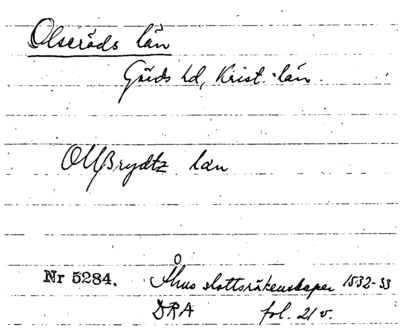 Olseröds län
Gärds hd, Krist. län.
Olßrydtz län
Nr 5284. Åhus slottsräkenskaper 1532-33
DRA fol. 21 v.